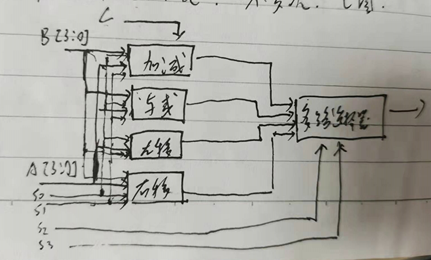 C
B[3:0]
加减
与或
左移
多路选择器
A[3:0]
右移
S0
S1
S2
S3